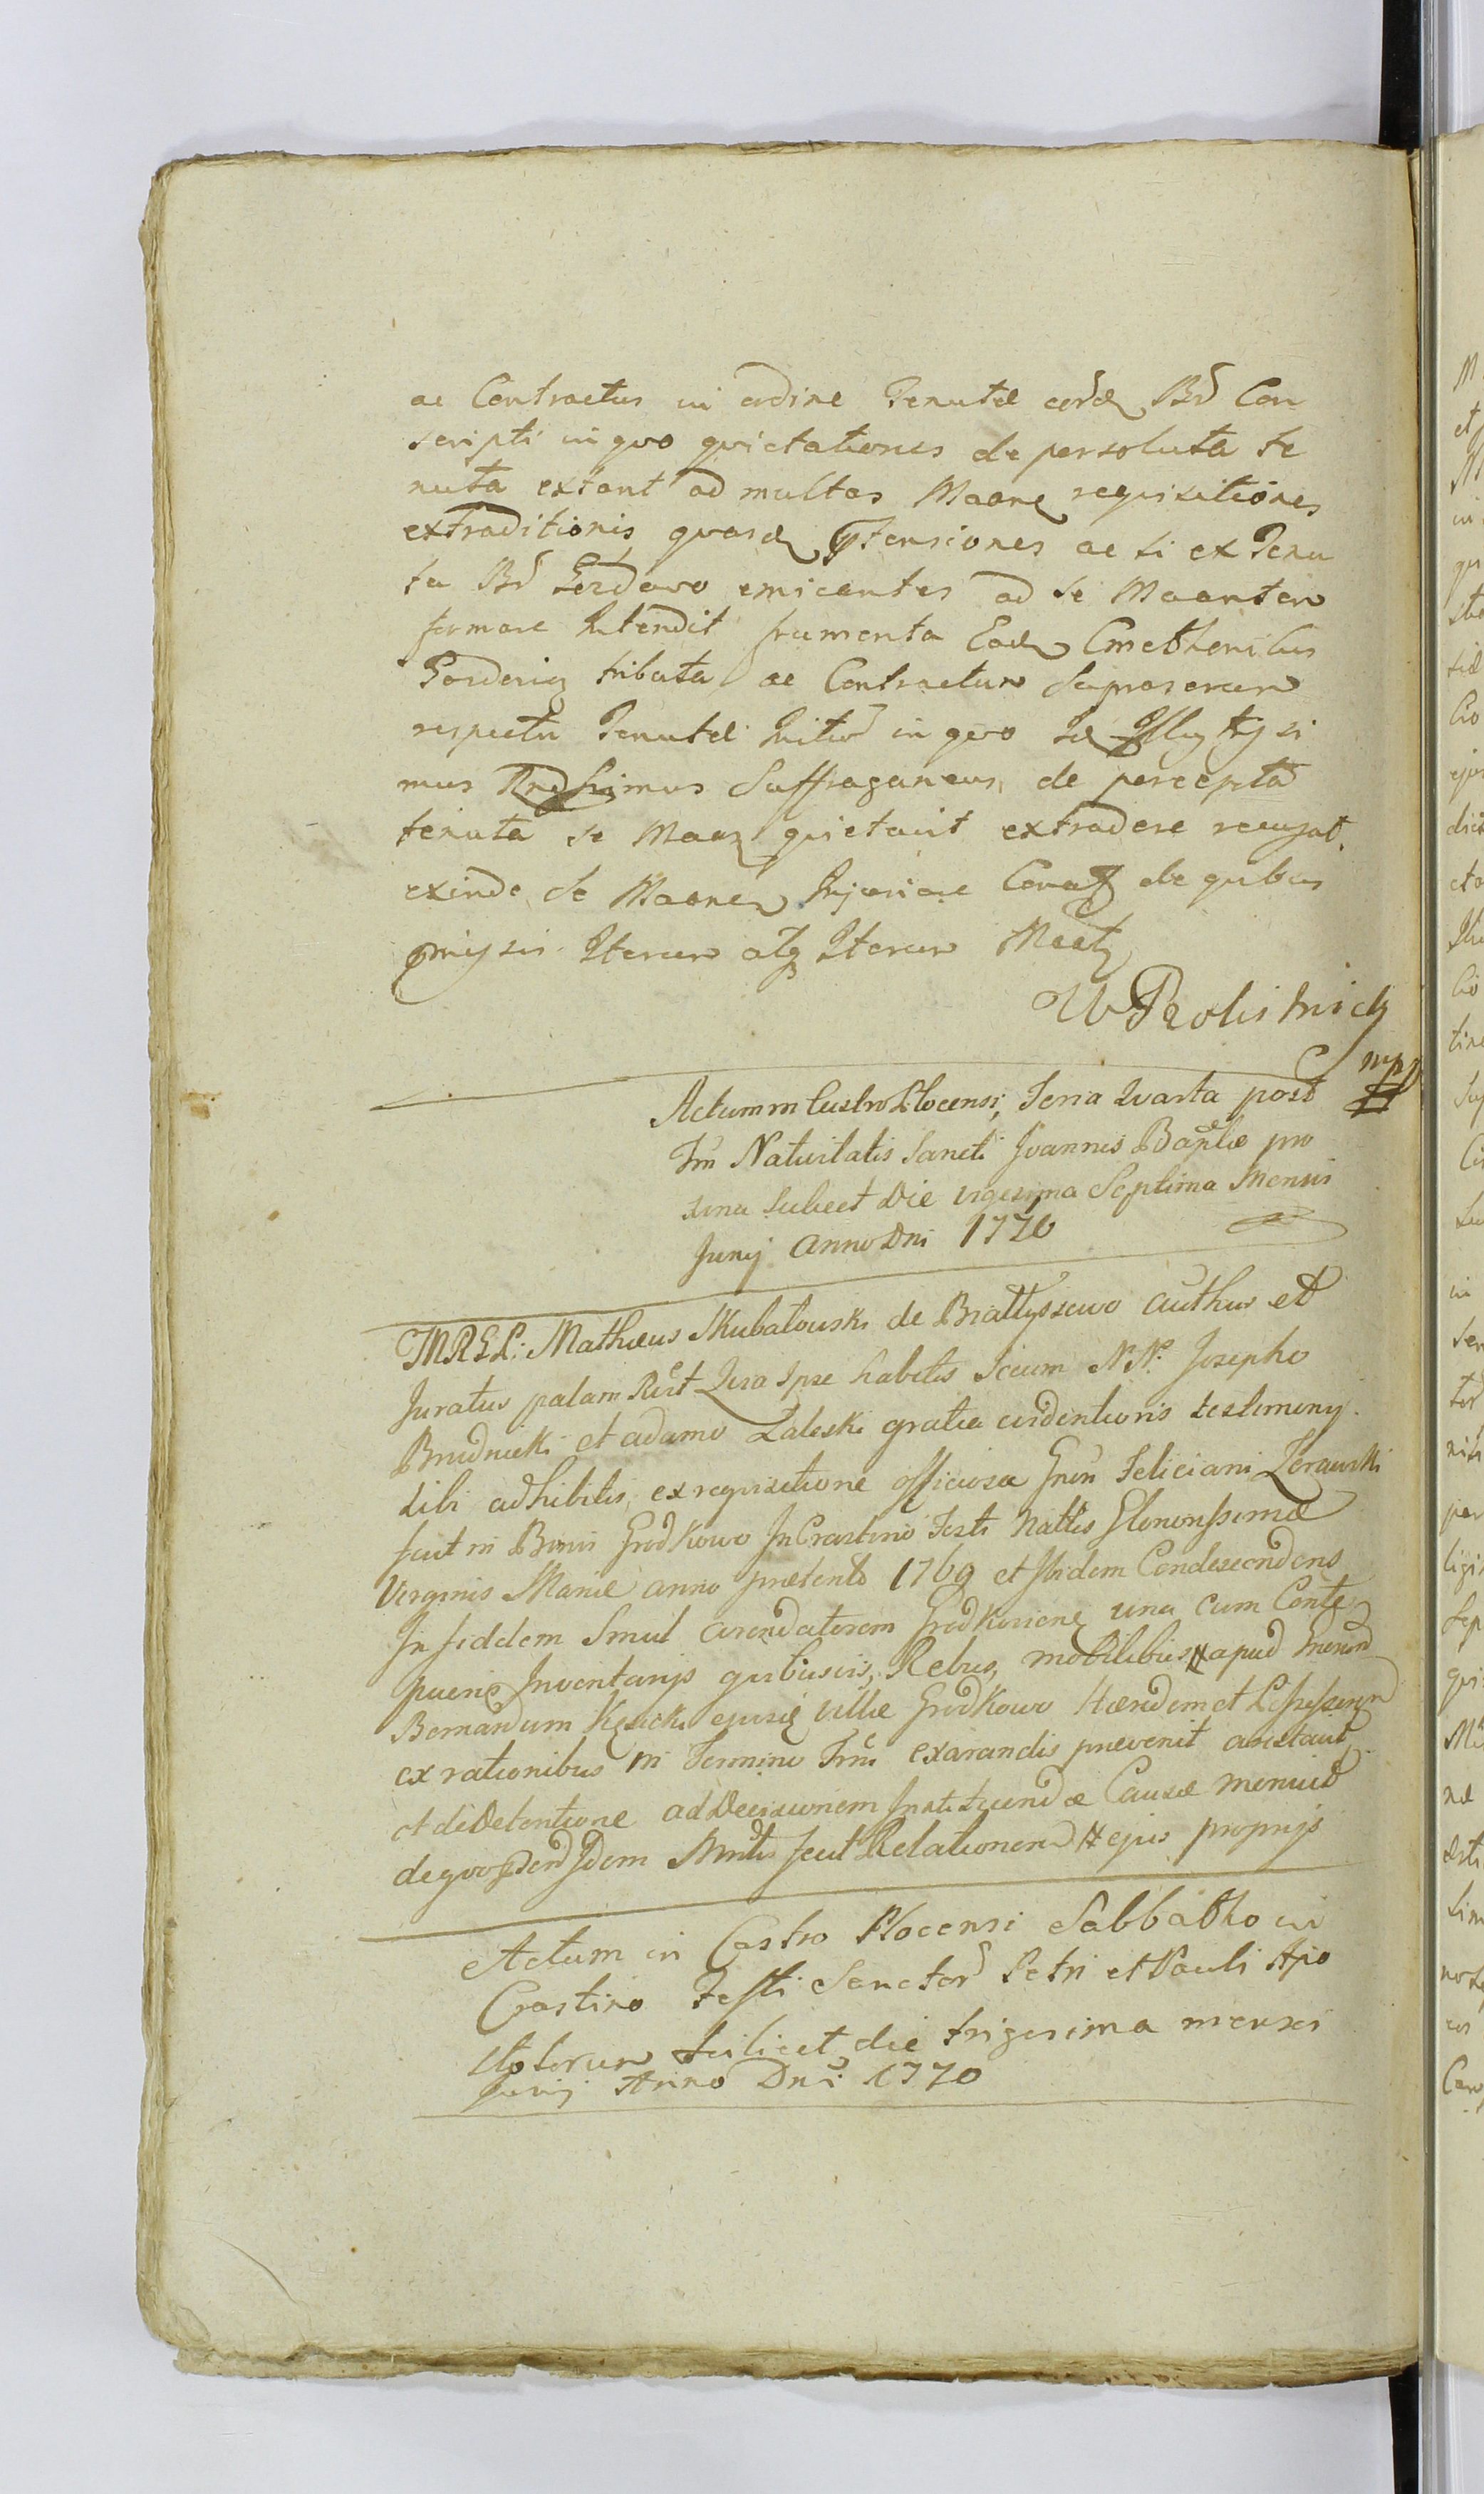 ac Contractus in ordine Tenutæ eord Bd Con
scripti in quo quietationes de persoluta te
nuta extant ad multas Maane requisitiones
extraditionis quasd ptensiones ac si ex Tenu
ta Bd emicantes ad se Maanten
formare Intendit frumenta Ead Cmethonibus
tributa ac Contractum Suprascrum
respectu Tenutæ Initum in quo Id
mus Rndssimus Suffraganeus, de percepta
tenuta se Maan quietavit extradere recusat.
exinde se Maanen Injuriare Conat de quibus
pmissis Iterum atq Iterum Mestz
mp
Actum in Castro Plocensi, Feria Quarta post
Fm Nativitatis Sancti Joannis Baptæ pro
xima scilicet Die vigesima Septima Mensis
Junij Anno Dni 1770
MREL: Mathæus Skubatowski de Brattyszewo authus et
Juratus palam Rect Quia Ipse habitis Secum NN. Josepho
Brudnicki et adamo Zaleski gratia evidentioris testimony
sibi adhibitis, ex requisitione officiosa Gnsi Feliciani Zerawski
fuit in Bonis Grodkowo In Crastino Festi Nattis Glorionssimæ
Virginis Mariæ anno prætento 1769 et Ibidem Condescendens
Infidelem Smul arendatorem Grodkoviens una cum Conte
puens Inventarijs quibusvis, Rebus, mobilibus apud Gnerosum
Bernardum Kęsicki ejusd villæ Grodkowo Hæredem et Possessorem
ex rationibus in Termino Trni exarandis prævenit arestavit
et de Detentione ad Decisionem Instituendæ Causæ monuit
de quo Idem Mntlis fecit Relationem ejus proprijs
Actum in Castro Plocensi Sabbatho in
Crastino Festi Sanctor Petri et Pauli Apo
stolorum Scilicet die trigesima mensis
Junij Anno Dni 1770